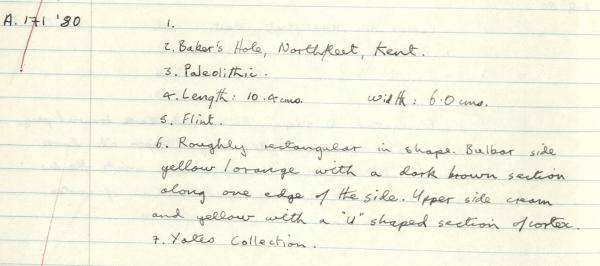 A. 171 '80
1.
2. Baker's Hole, Northfleet, Kent.
3. Paleolithic.
4. Length: 10.4cms. width: 6.0cms.
5. Flint.
6. Roughly rectangular in shape. Bulbar side
yellow/orange with a dark brown section
along one edge of the side. Upper side cream
and yellow with a "U" shaped section of cortex.
7. Yates Collection.